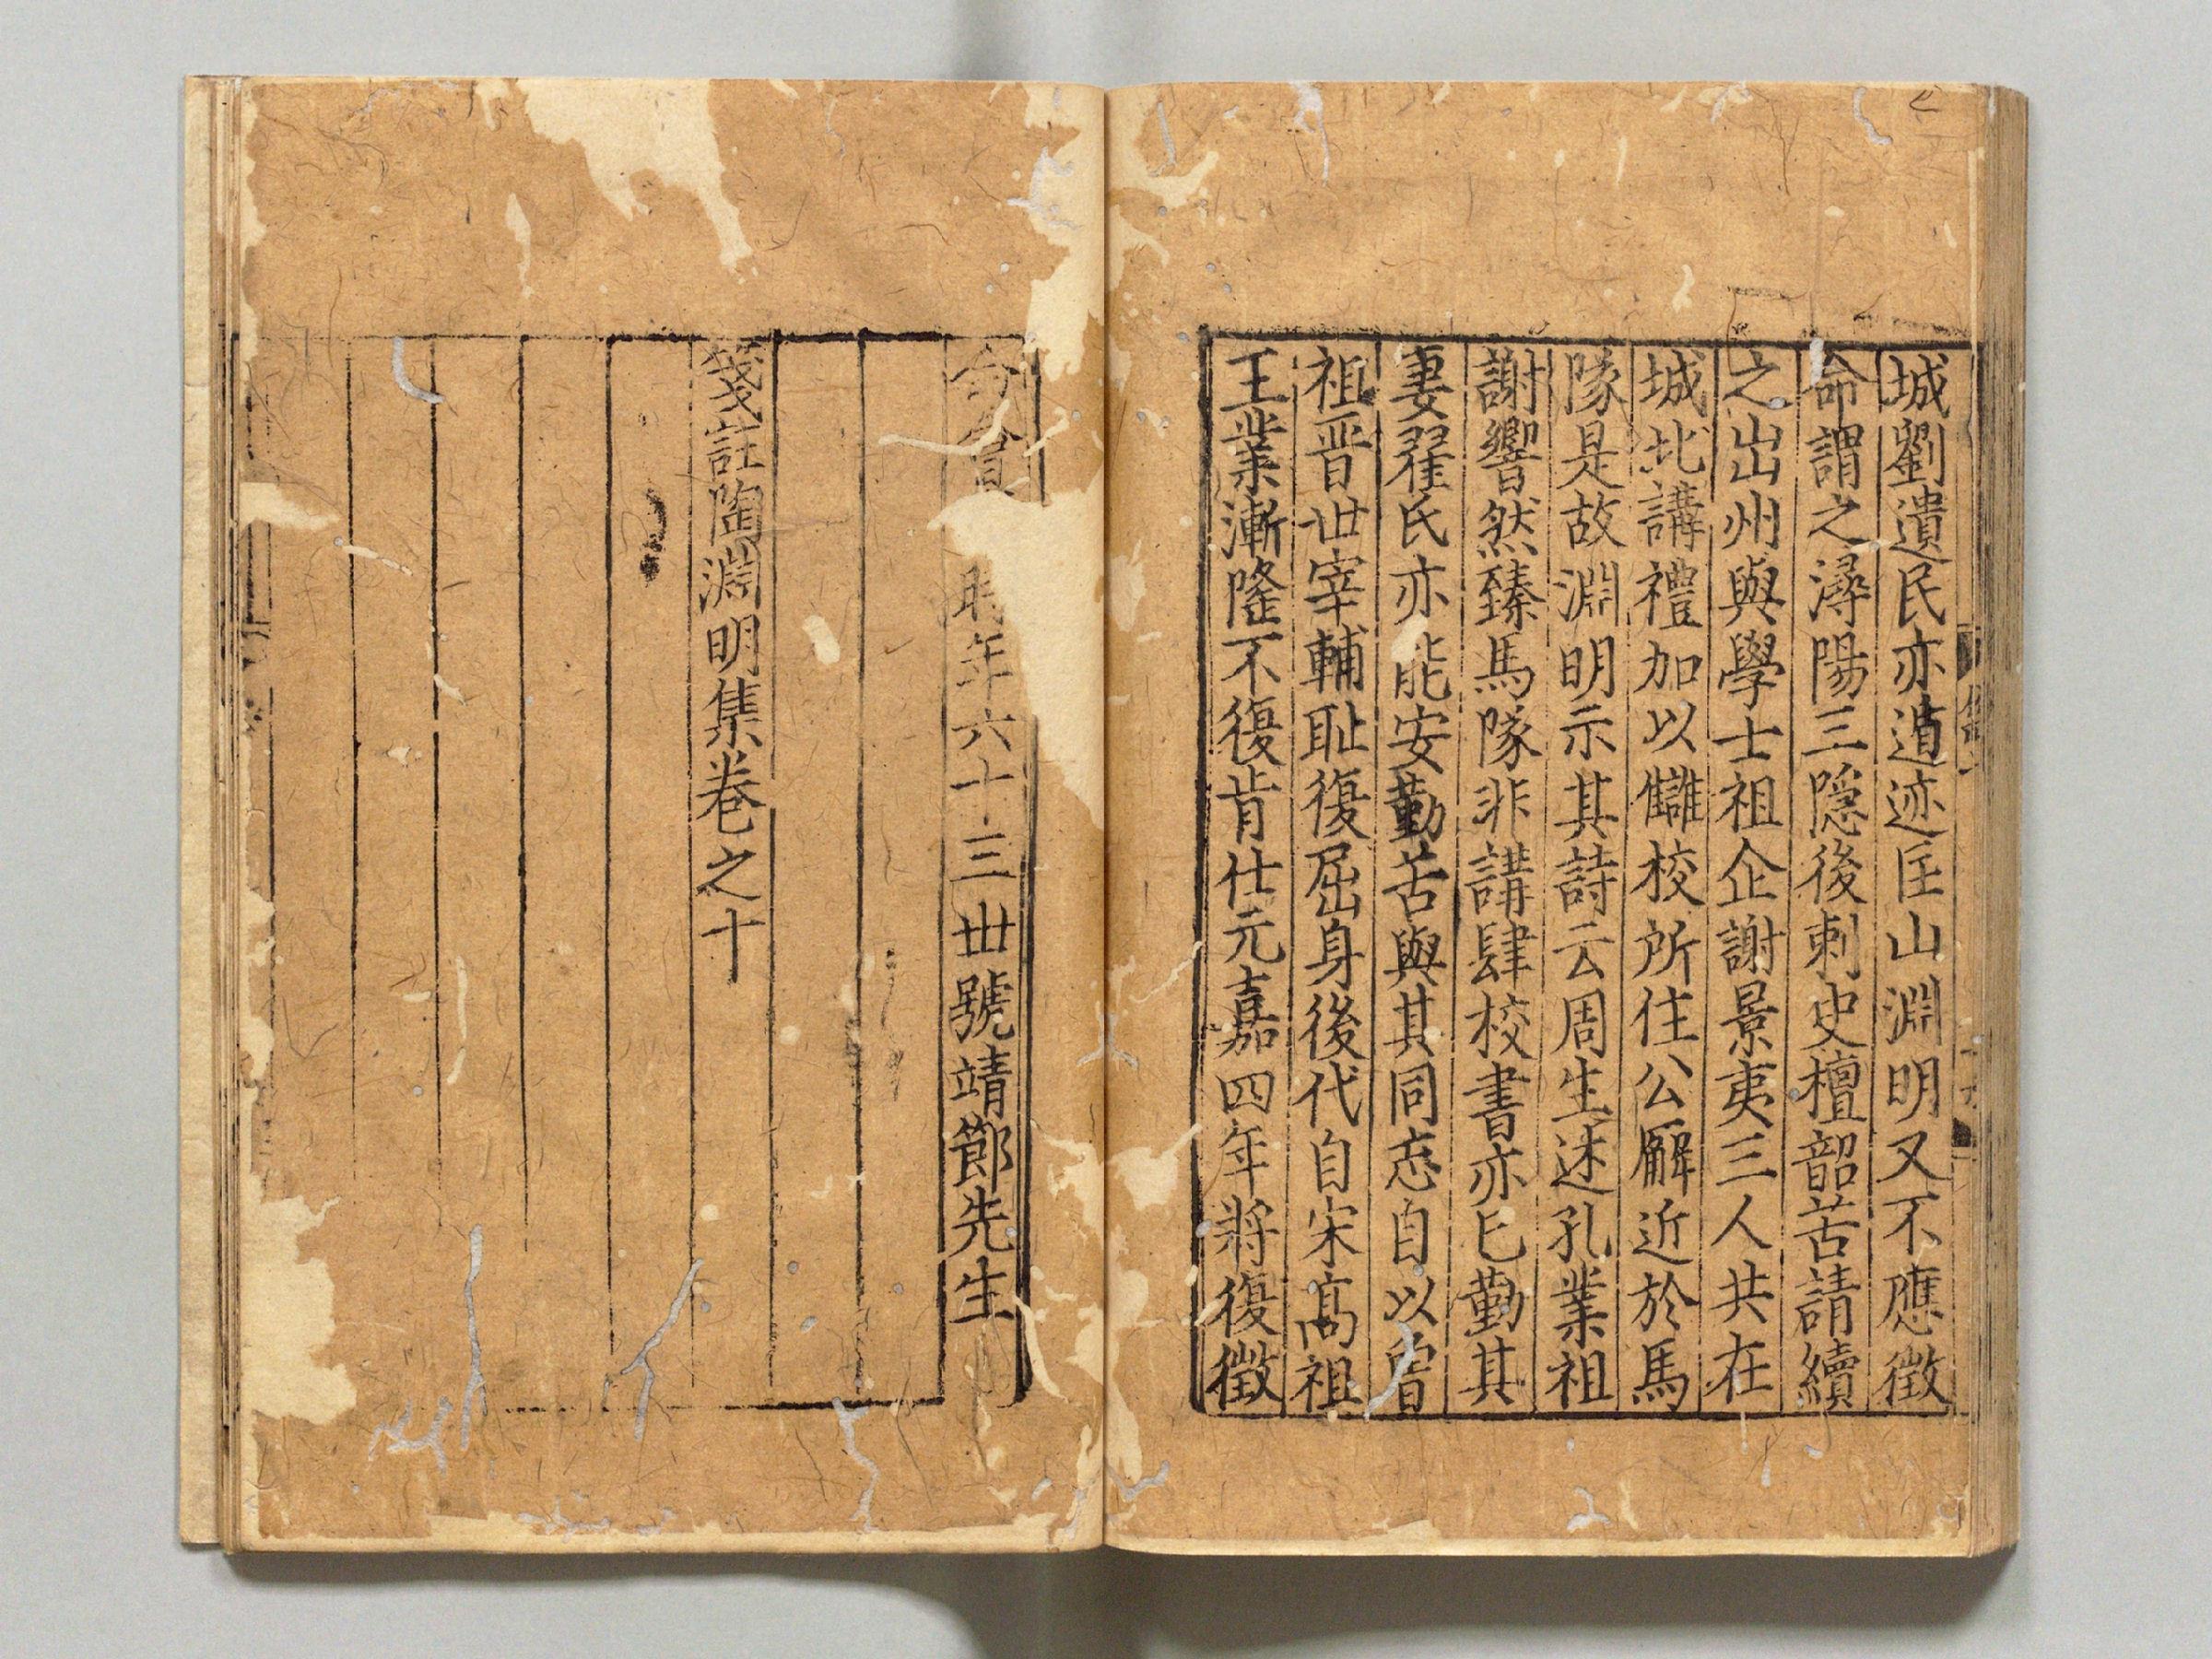 城劉遺民亦遁迹匡山淵明又不應徵
命謂之潯陽三隱後刺史檀韶苦請續
之出州與學士祖企謝景夷三人共在
城北講禮加以讎校所住公廨近於馬
隊是故淵明示其詩云周生述孔業祖
謝響然臻馬隊非講肆校書亦已勤其
妻翟氏亦能安勤苦與其同志自以曾
祖晉世宰輔恥復屈身後代自宋高祖
王業漸隆不復肯仕元嘉四年將復徵
命會時年六十三世號靖節先生
箋註陶淵明集卷之十